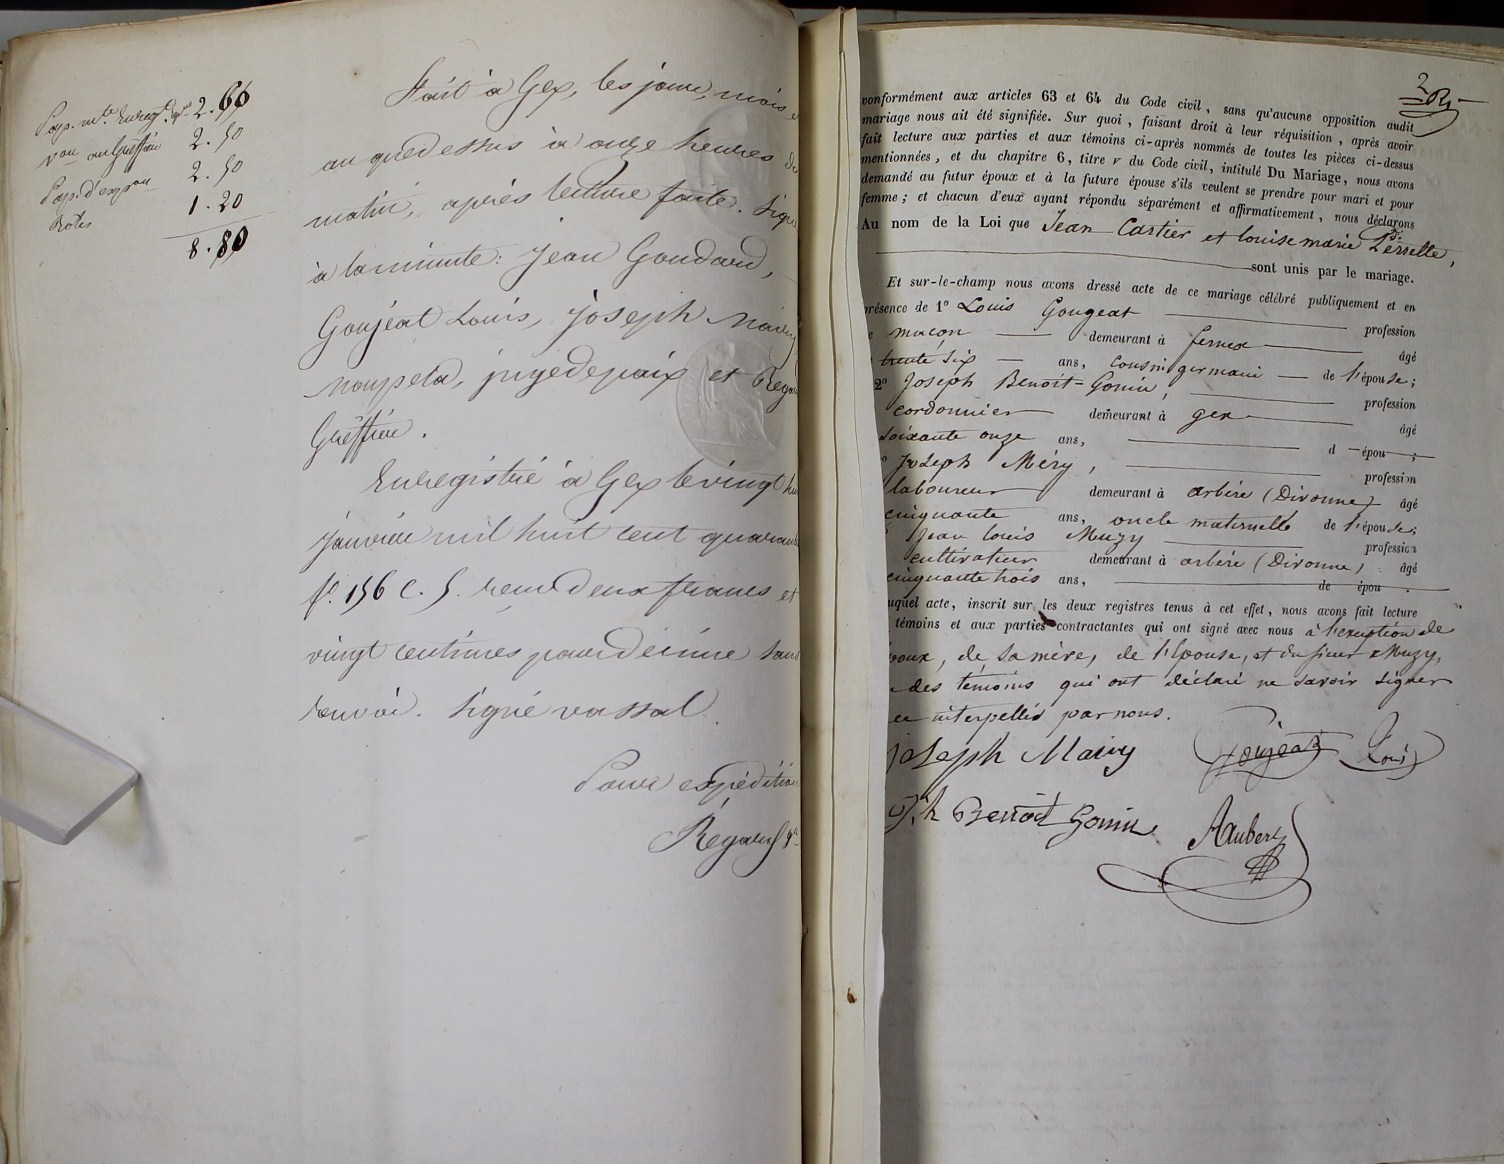 2.60
von au Greffier 2.50
2.50
Rôles 1.20
8.80
Fait à Gex, les jour, mois e
an quedessus à onze heures du
matin, après lecture faite. Signé
à la minute: Jean Goudard,
Goujeat Louis, Joseph Mairy
jugedepaix et Rega
Greffier.
Enregistré à Gex levingt hui
janvier mil huit cent quarante
fo. 156 C. 5. reçu deux francs et
vingt centimes pour décime sans
renvoi. Signé vassal.
Pour expédition
Régard gr
2
conformément aux articles 63 et 64 du Code civil, sans qu'aucune opposition audit
mariage nous ait été signifiée. Sur quoi, faisant droit à leur réquisition, après avoir
fait lecture aux parties et aux témoins ci-après nommés de toutes les pièces ci-dessus
mentionnées, et du chapitre 6, titre v du Code civil, intitulé Du Mariage, nous avons
demandé au futur époux et à la future épouse s'ils veulent se prendre pour mari et pour
femme; et chacun d'eux ayant répondu séparément et affirmativement, nous déclarons
Au nom de la Loi que Jean Cartier et louise marie Perrette,
sont unis par le mariage.
Et sur-le-champ nous avons dressé acte de ce mariage célébré publiquement et en
présence de 1° Louis Gougeat profession
e maçon demeurant à fernex âgé
trente six ans, cousin germain de l'épouse;
2° Joseph Benoit=Gonin, profession
cordonnier demeurant à gex âgé
soixante onze ans, d épou ;
° Joseph Méry, profession
laboureur demeurant à arbère (Divonne) âgé
cinquante ans, oncle maternelle de l'épouse;
Jean louis Muzy profession
cultivateur demeurant à arbère (Divonne) âgé
cinquante trois ans, de épou .
uquel acte, inscrit sur les deux registres tenus à cet effet, nous avons fait lecture
témoins et aux parties contractantes qui ont signé avec nous à l'exception de
époux, de sa mère, de l'épouse, et du sieur Muzy,
des témoins qui ont déclaré ne savoir signer
ce interpellés par nous.
joseph Mairy Goujeat Louis
J.h Benoit Gonin Aubert